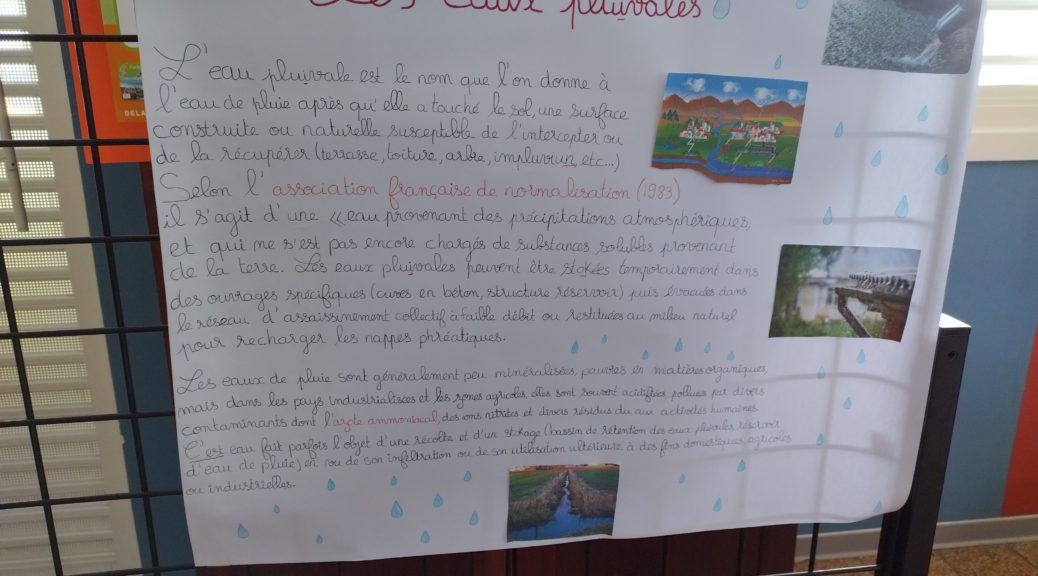 Les eaux pluivales
L'eau pluivale est le nom que l'on donne à
l'eau de pluie après qu'elle a touché le sol, une surface
construite ou naturelle susceptible de l'intercepter ou
de la récupérer (terrasse, toiture, arbre, impluvium, etc...)
Selon l'association française de normalisation (1983)
il s'agit d'une «eau provenant des précipitations atmosphériques,
et qui ne s'est pas encore chargés de substances solubles provenant
de la terre. Les eaux pluivales peuvent être stokées temporairement dans
des ouvrages spécifiques (cuves en béton, structure réservoir) puis évacuées dans
le réseau d'assaissinement collectif à faible débit ou restituées au milieu naturel
pour recharger les nappes phréatiques.
Les eaux de pluie sont généralement peu minéralisées, pauvres en matières organiques,
mais dans les pays industrialisées et les zones agricoles, elles sont souvent acidifiées, pollues par divers
contaminants dont l'azote ammoniacal, des ions nitrites et divers résidus du aux activités humaines.
C'est eau fait parfois l'objet d'une récolte et d'un stokage (bassin de rétention des eaux pluviales, réservoir
d'eau de pluie) en vu de son infiltration ou de son utilisation ultérieure à des fins domestiques, agricoles
ou industrielles.
DELA